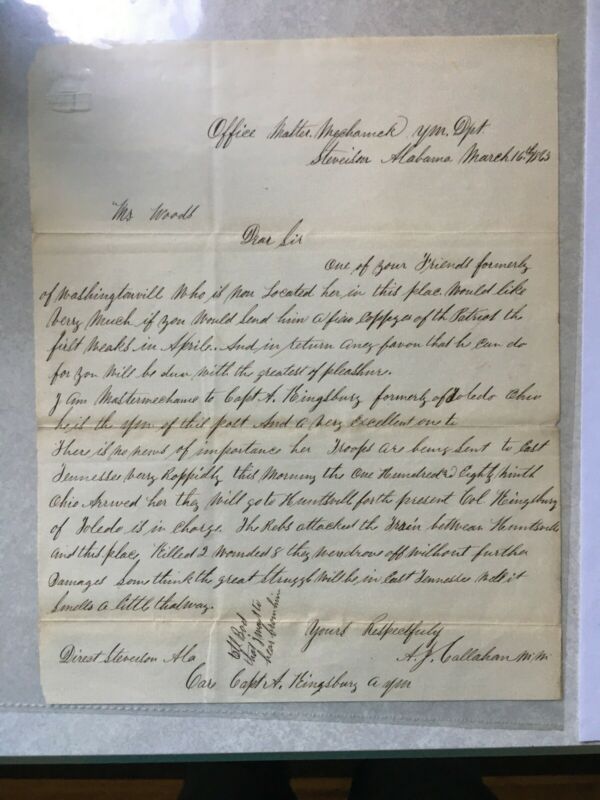 Office Master Mechanick qm. Dpt.
Steveison Alabama March 16th 1865
"Mr Woods
Dear Sir
One of your Friends formerly
of Washingtonvill Who is now Located her in this plac Would like
Very Much if you Would send him a few Coppyes of the Patriot the
first Weaks in Aprile. And in return aney favor that he can do
for you Will be dun with the greatest of pleashure.
I am Mastermechanic to Capt A. Kingsbury formerly of Toledo Ohio
he is the qm of this post And a very Excellent one to
There is no news of importance her Troops are being Sent to East
Tennessee very Roppidly this Morning the One Hundred Eighty Ninth
Ohio Arrived her they Will go to Huntsvill for the present Col. Kingsbury
of Toledo is in charge. The Rebs attacked the Train betwean Huntsville
and this place, Killed 2 Wounded 8 they wer drove off without further
Damages Som think the great Struggle Will be in East Tennessee Well it
Smells a little that way.
Yours Respectfully
A. J. Callahan M.M.
Direct Steveison Ala
Care Capt A. Kingsbury A qm
hear from him